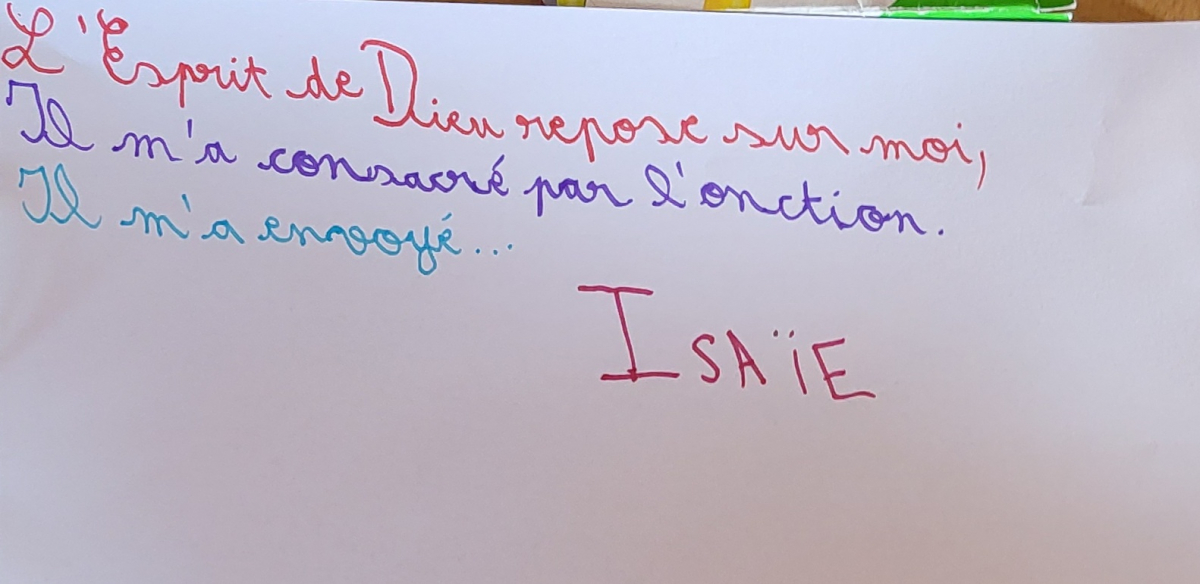 L'Esprit de Dieu repose sur moi,
Il m'a consacré par l'onction.
Il m'a envoyé...
ISAÏE